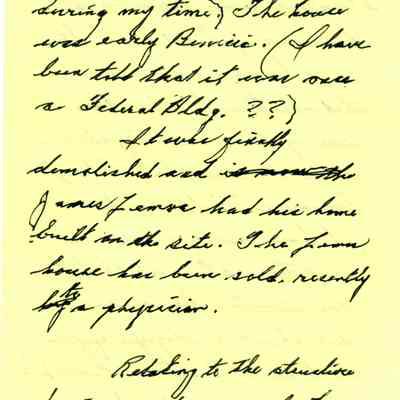 during my time. } The house
was early Benicia. (I have
been told that it was once
a Federal Bldg. ??)
It was finally
demolished and is now the
James Lemos had his home
built on the site. The Lemos
house has been sold, recently
to a physician.
Relating to the structure